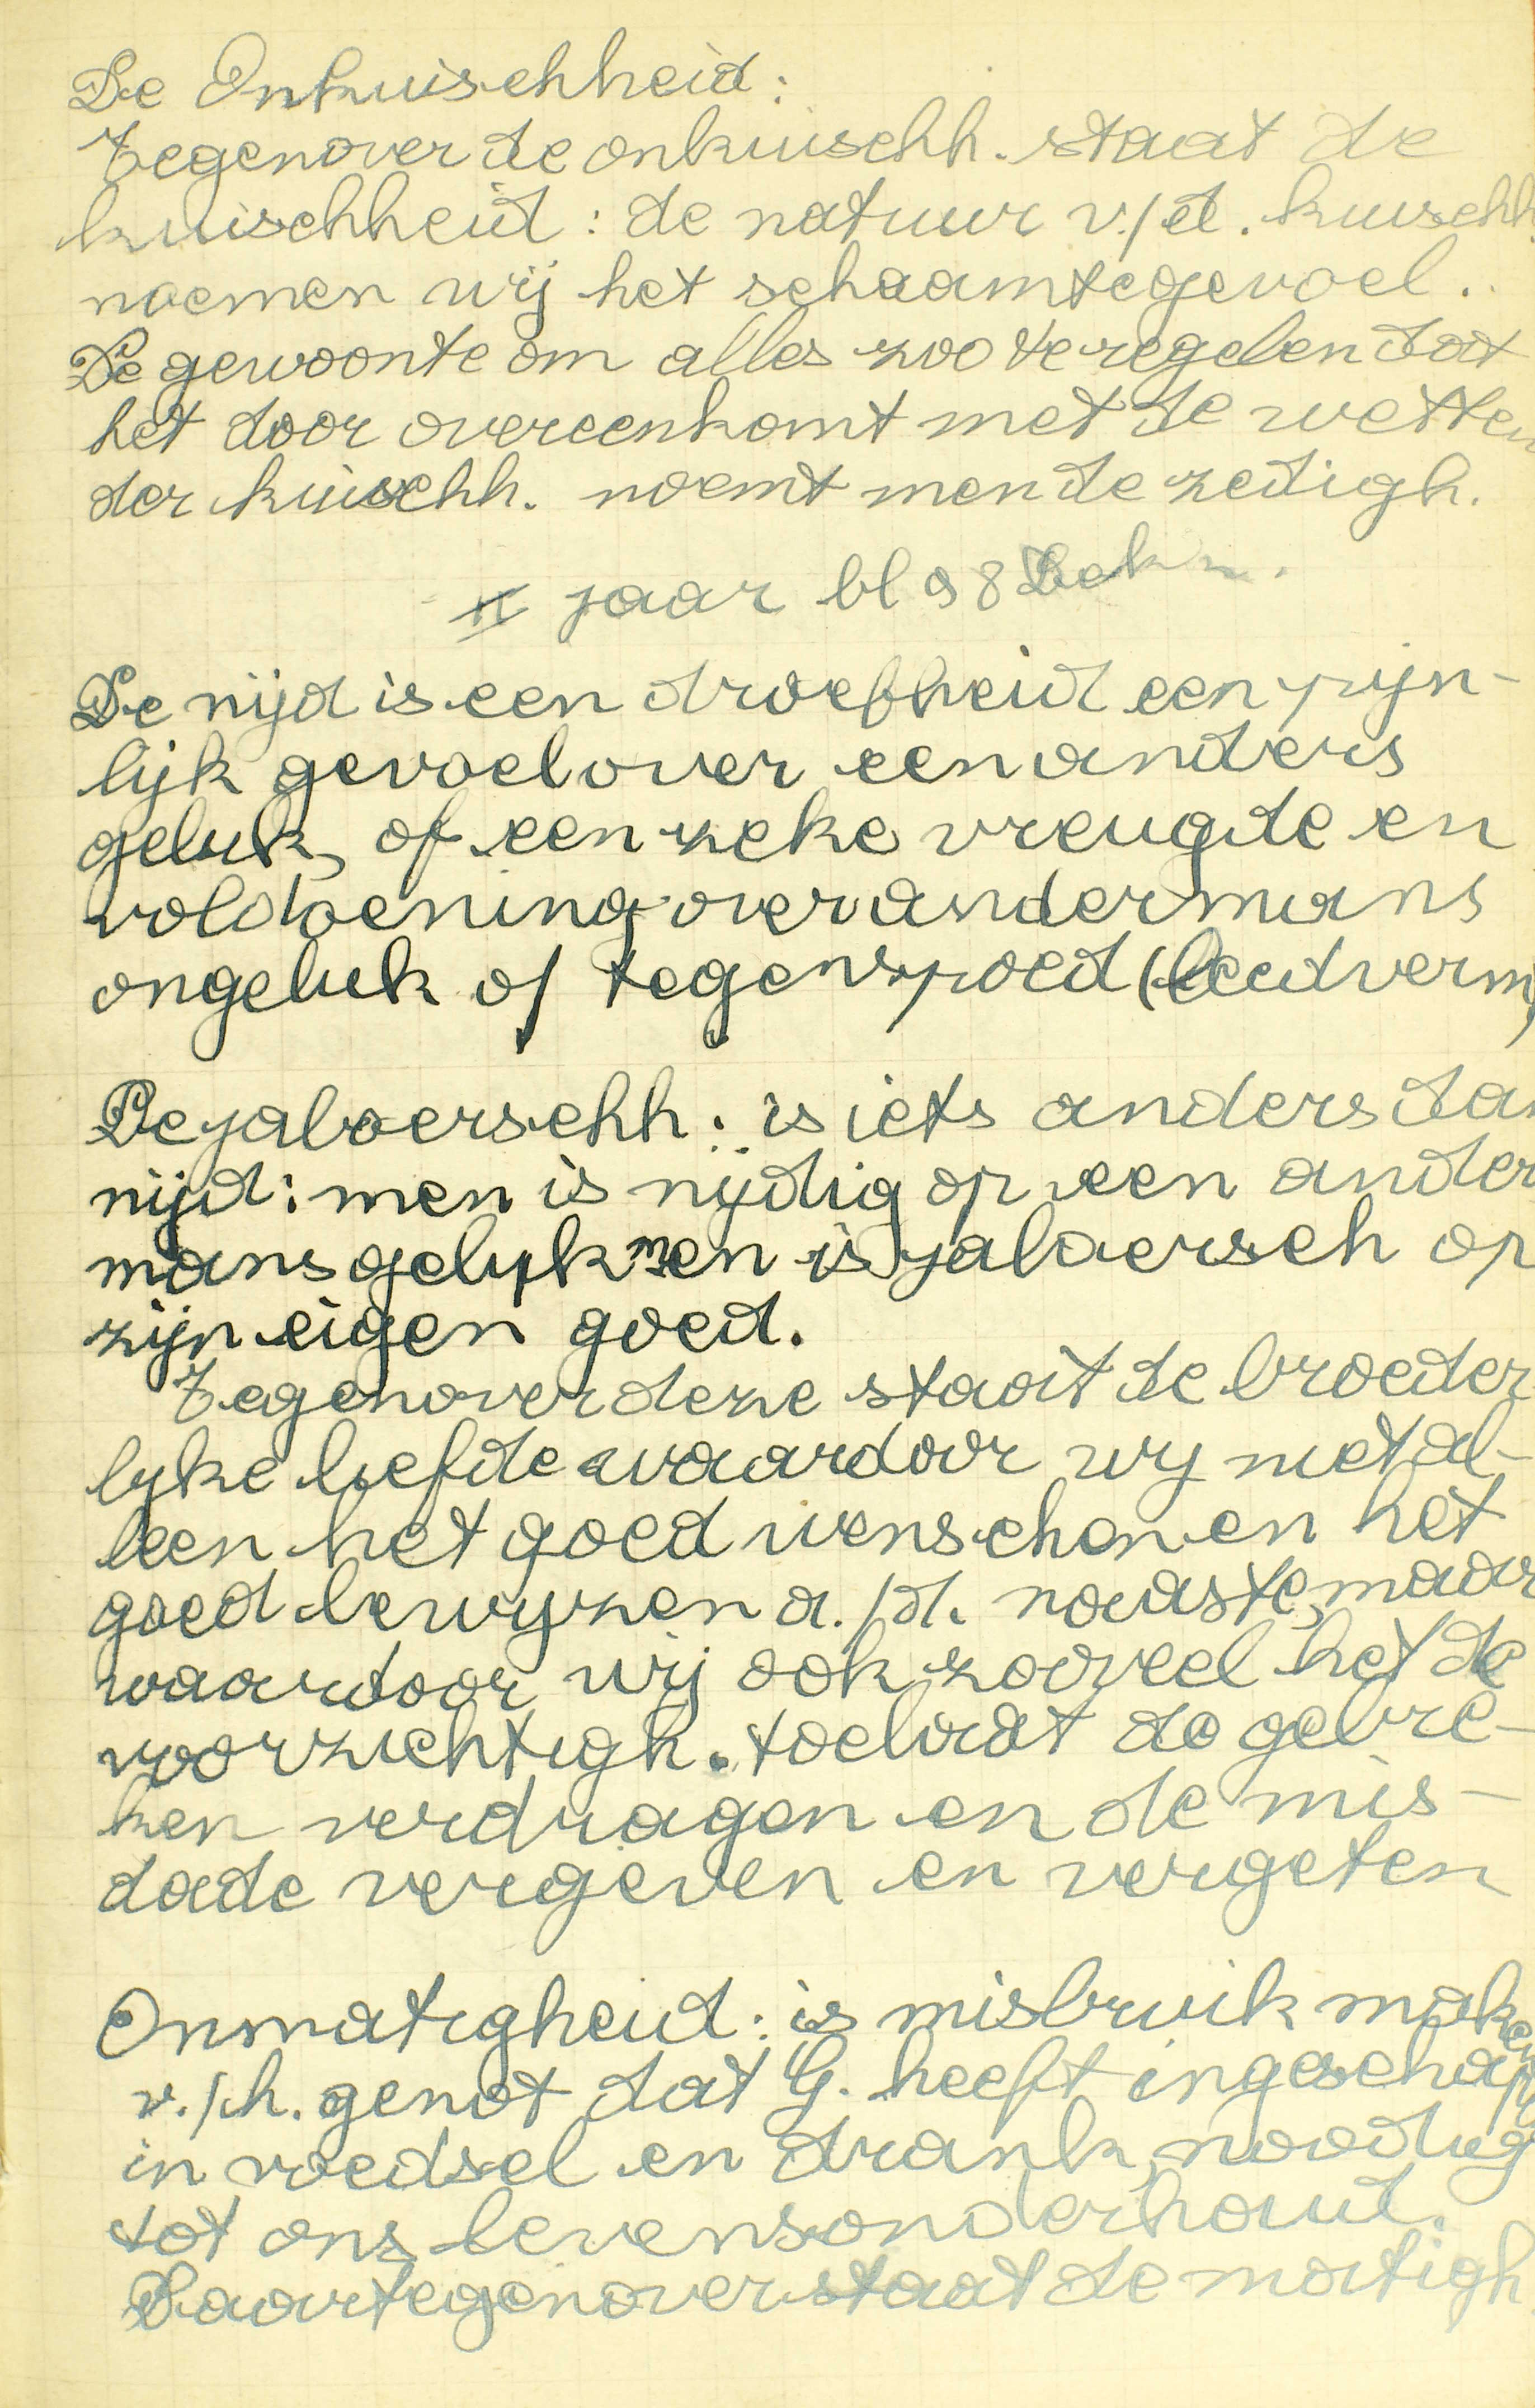 De Onkuischheid:
Tegenover de onkuischh. staat de
kuischheid: de natuur v./d. kuischh.
noemen wij het schaamtegevoel.
De gewoonte om alles zoo te regelen dat
het door overeenkomt met de wetten
der kuischh. noemt men de zedigh.
II jaar bl 98
De nijd is een droefheid een pijn-
lijk gevoel over een anders
geluk, of een zeke vreugde en
voldoening over andermans
ongeluk of tegenspoed (leedverm)
De jaloerschh. is iets anders dan
nijd: men is nijdig op een ander
mans gelyk men is jaloersch op
zijn eigen goed.
Tegenover deze staat de broeder
lyke liefde waardoor wy niet al-
leen het goed wenschen en het
goed bewyzen a./d. naaste, maar
waardoor wij ook zooveel het de
voorzichtigk. toelaat de gebre-
ken verdragen en de mis-
dade vergeven en vergeten
Onmatigheid: is misbruik maken
v./h. genot dat G. heeft ingeschapen
in voedsel en drank noodig
tot ons levensonderhoud.
Daartegenover staat de matigh